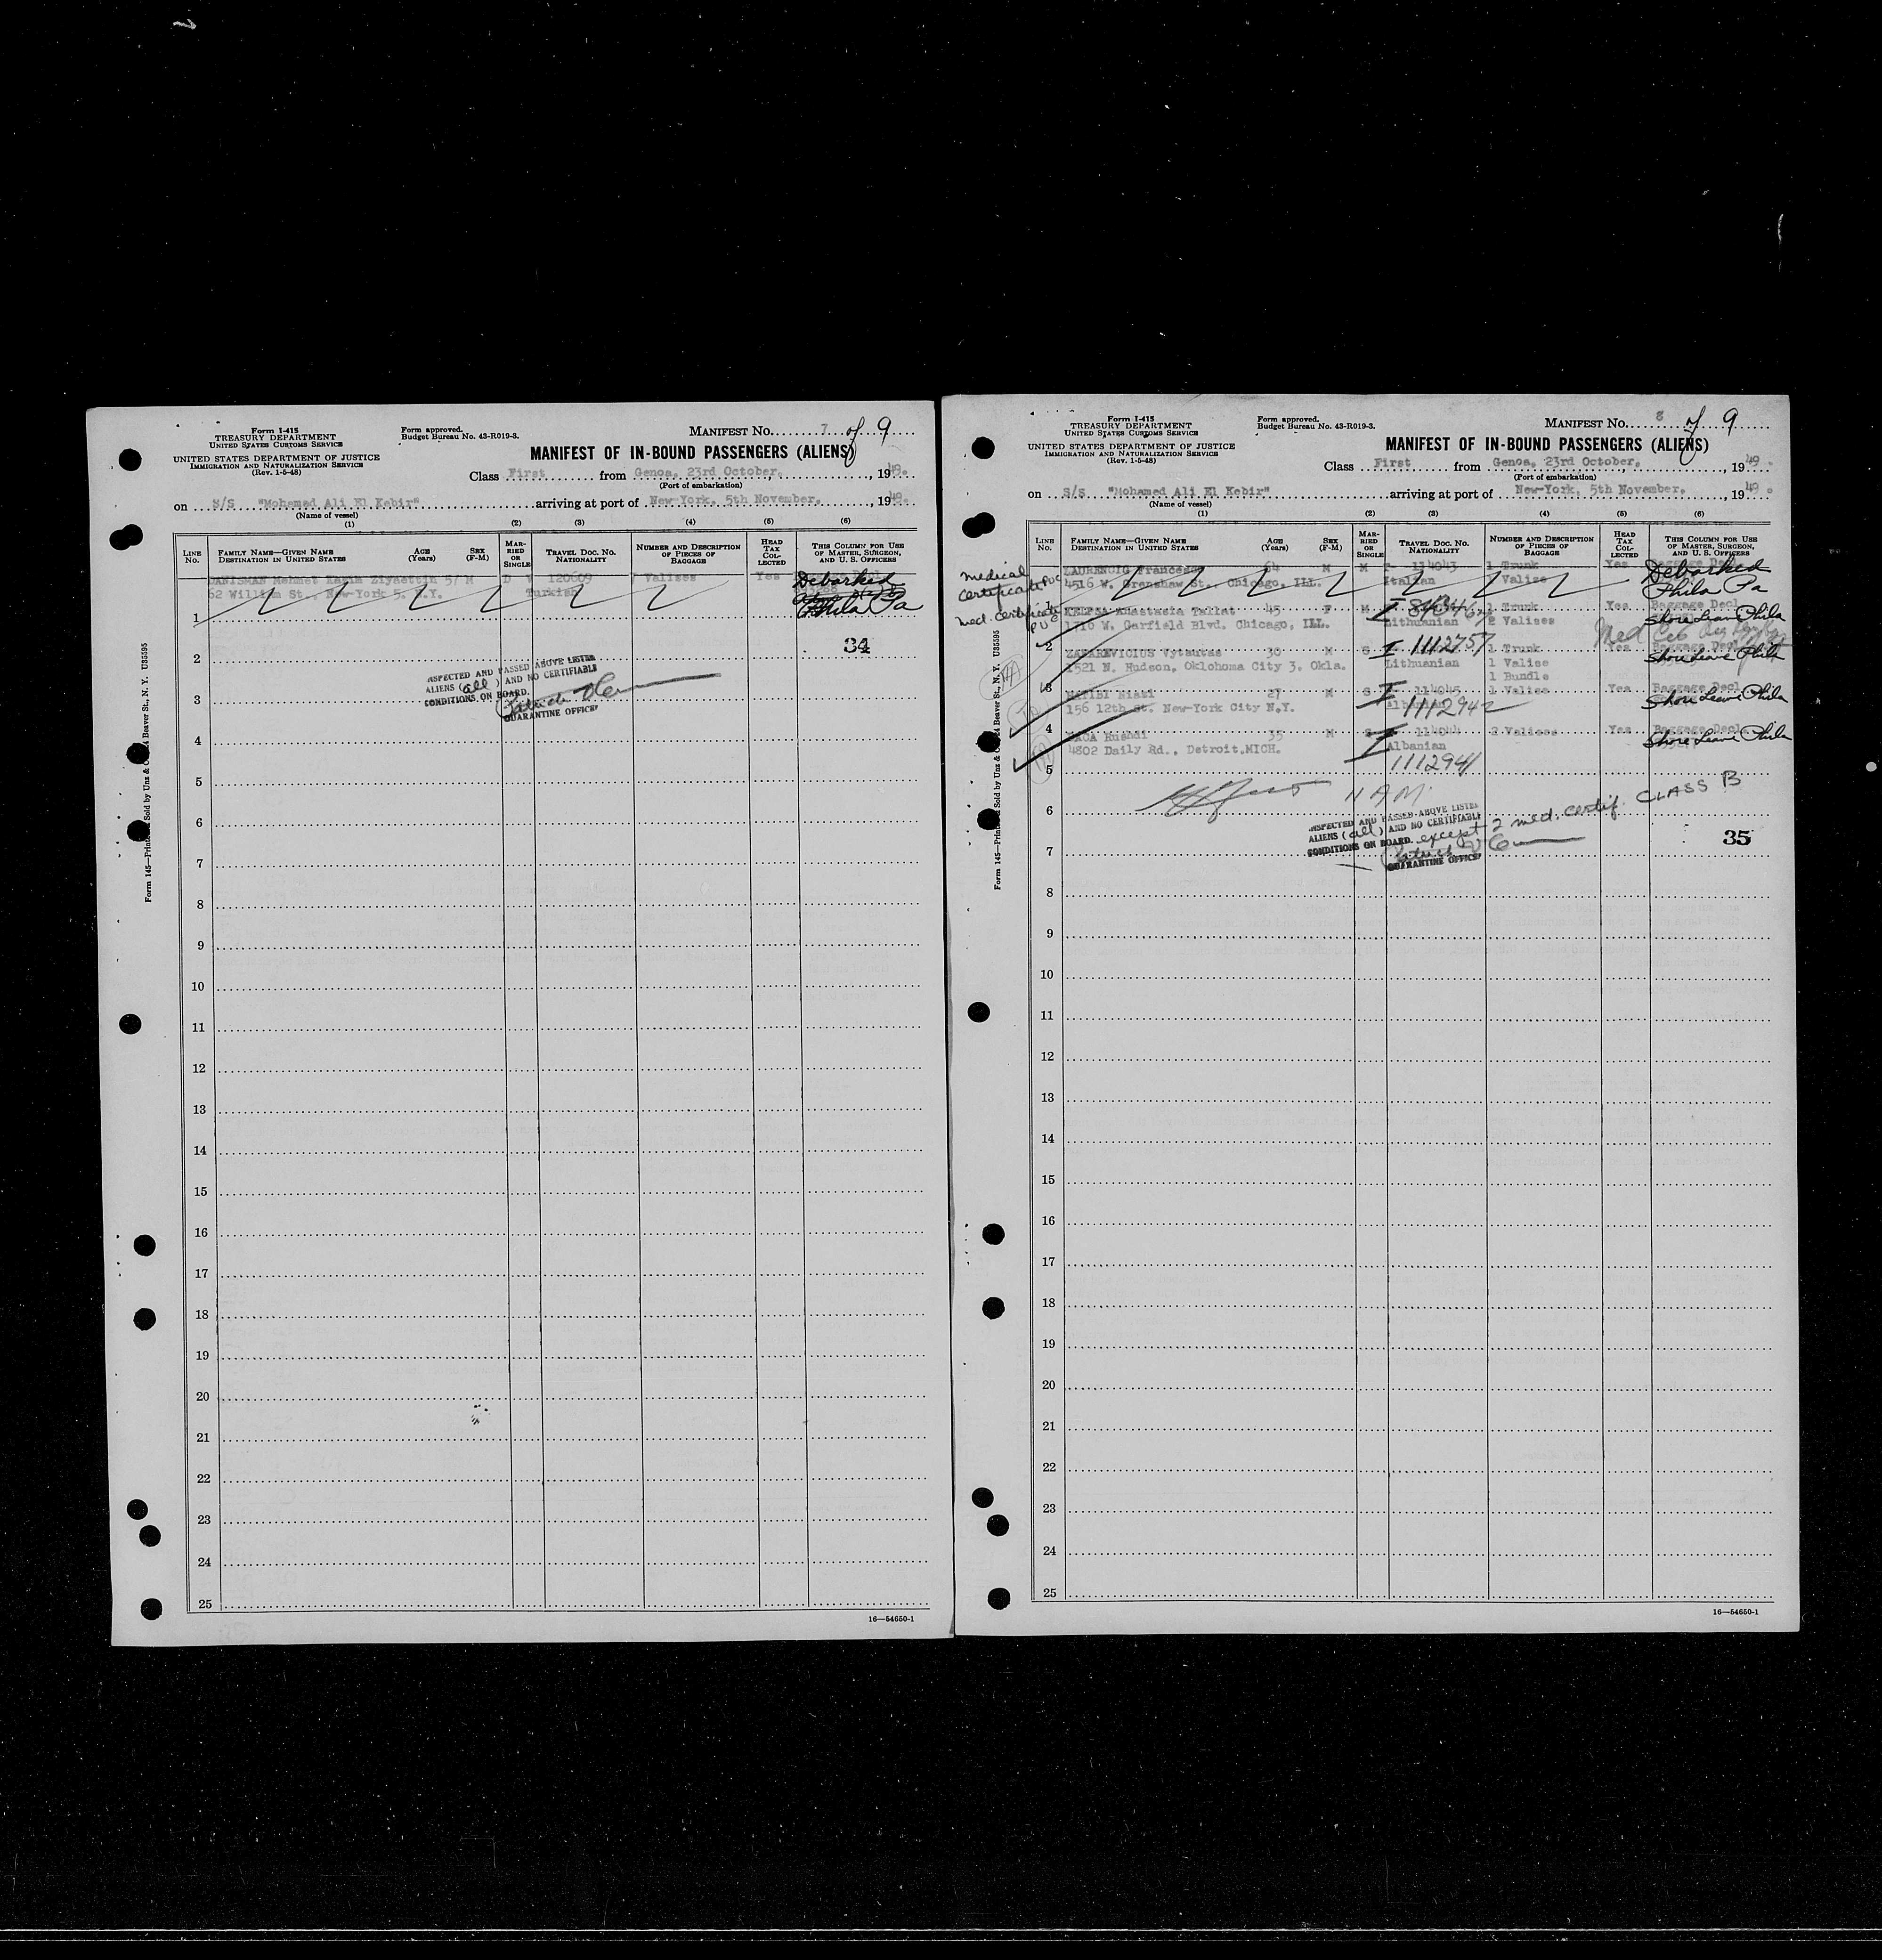 Form I-415
TREASURY DEPARTMENT
UNITED STATES CUSTOMS SERVICE
UNITED STATES DEPARTMENT OF JUSTICE
IMMIGRATION AND NATURALIZATION SERVICE
(Rev. 1-5-48)
Form approved.
Budget Bureau No. 43-R019-3.
MANIFEST No. 7 of 9
MANIFEST OF IN-BOUND PASSENGERS (ALIENS)
Class First from Genoa, 23rd October, , 1949.
(Port of embarkation)
on S/S "Mohamed Ali El Kebir" arriving at port of New York, 5th November, , 1949.
(Name of vessel)
(1) (2) (3) (4) (5) (6)
LINE No.
FAMILY NAME—GIVEN NAME DESTINATION IN UNITED STATES
AGE (Years)
SEX (F-M)
MARRIED OR SINGLE
TRAVEL DOC. NO. NATIONALITY
NUMBER AND DESCRIPTION OF PIECES OF BAGGAGE
HEAD TAX COLLECTED
THIS COLUMN FOR USE OF MASTER, SURGEON, AND U. S. OFFICERS
DANISMAN Mehmet Ziyaettin 57 M D 120609 Valises Yes Debarked
62 William St., New-York 5, N.Y. Turkish Phila Pa
34
INSPECTED AND PASSED ABOVE LISTED
ALIENS (all) AND NO CERTIFIABLE
CONDITIONS ON BOARD.
QUARANTINE OFFICER
1
2
3
4
5
6
7
8
9
10
11
12
13
14
15
16
17
18
19
20
21
22
23
24
25
Form 145—Printed Sold by Unz & Co. 24 Beaver St., N. Y. U35595
16—54650-1
Form I-415
TREASURY DEPARTMENT
UNITED STATES CUSTOMS SERVICE
UNITED STATES DEPARTMENT OF JUSTICE
IMMIGRATION AND NATURALIZATION SERVICE
(Rev. 1-5-48)
Form approved.
Budget Bureau No. 43-R019-3.
MANIFEST No. 8 of 9
MANIFEST OF IN-BOUND PASSENGERS (ALIENS)
Class First from Genoa, 23rd October, , 1949.
(Port of embarkation)
on S/S "Mohamed Ali El Kebir" arriving at port of New-York, 5th November, , 1949.
(Name of vessel)
(1) (2) (3) (4) (5) (6)
LINE No.
FAMILY NAME—GIVEN NAME DESTINATION IN UNITED STATES
AGE (Years)
SEX (F-M)
MARRIED OR SINGLE
TRAVEL DOC. NO. NATIONALITY
NUMBER AND DESCRIPTION OF PIECES OF BAGGAGE
HEAD TAX COLLECTED
THIS COLUMN FOR USE OF MASTER, SURGEON, AND U. S. OFFICERS
Medical Certificate PUC
Med. Certificate PUC
LAURENCIG Francesco 64 M M 114043 1 Trunk Yes Debarked
4516 W. Grenshaw St. Chicago, ILL. Italian Valise Phila Pa
KELPSA Anastasia Tallat 45 F M 1 Trunk Yes Baggage Decl.
1710 W. Garfield Blvd. Chicago, ILL. Lithuanian 2 Valises Shore Leave Phila
ZAKAREVICIUS Vytautas 30 M S I 1112757 1 Trunk Yes Baggage Decl.
1521 N. Hudson, Oklohoma City 3. Okla. Lithuanian 1 Valise Shore Leave Phila
1 Bundle
27 M S I 114045 1 Valise Yes Baggage Decl.
156 12th St. New-York City N.Y. Albanian 1112942 Shore Leave Phila
Rushdi 35 M S I 114044 2 Valises Yes Baggage Decl.
4802 Daily Rd., Detroit.MICH. Albanian 1112941 Shore Leave Phila
11 AM.
CLASS B
INSPECTED AND PASSED ABOVE LISTED
ALIENS (all) AND NO CERTIFIABLE
CONDITIONS ON BOARD. except 2 med. certif.
QUARANTINE OFFICER
35
1
2
3
4
5
6
7
8
9
10
11
12
13
14
15
16
17
18
19
20
21
22
23
24
25
Form 145—Printed Sold by Unz & Co. 24 Beaver St., N. Y. U35595
16—54650-1